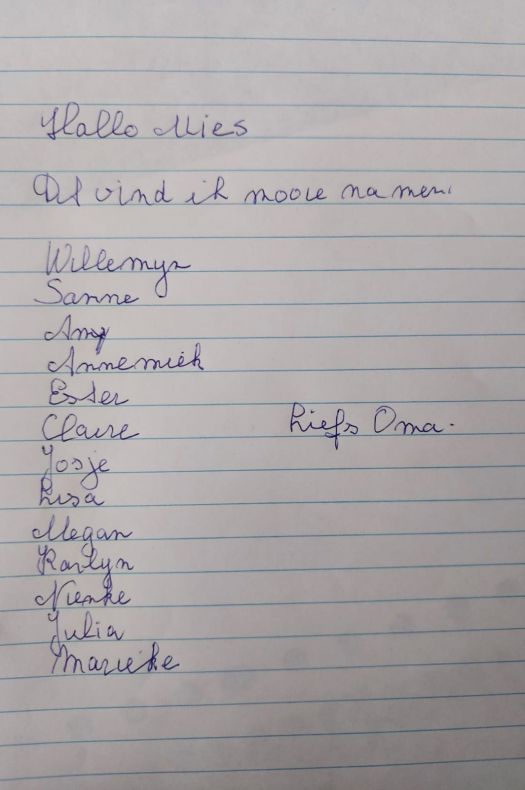 Hallo Mies
Dit vind ik mooie namen.
Willemyn
Sanne
Amy
Annemiek
Ester
Claire
Liefs Oma.
Josje
Lisa
Megan
Karlyn
Nienke
Julia
Marieke